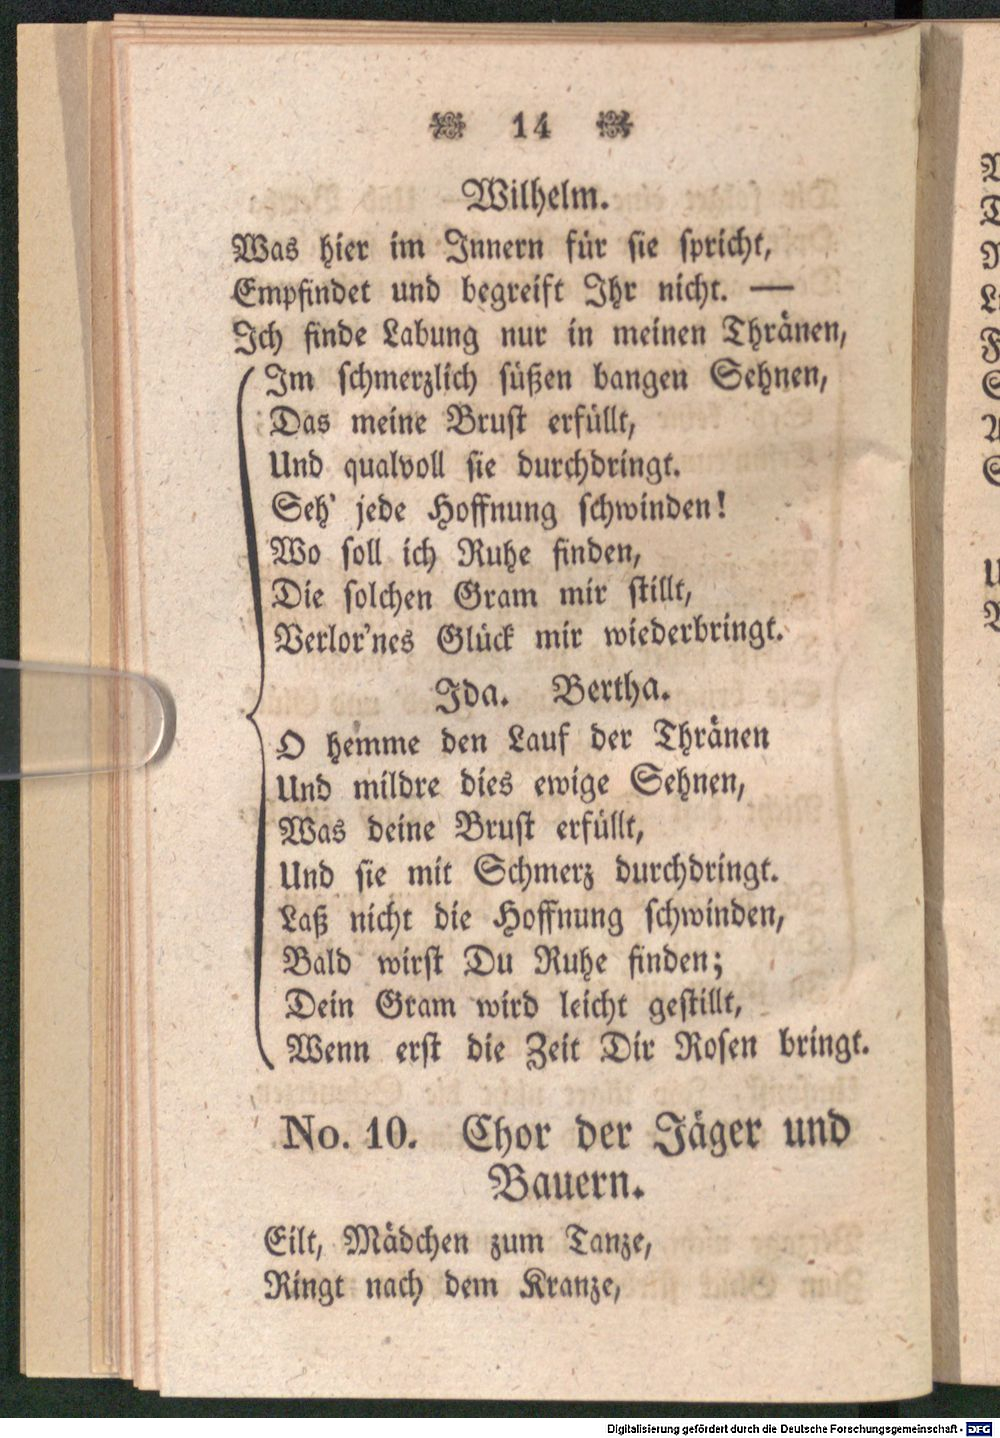 14
Wilhelm.
Was hier im Innern für sie spricht,
Empfindet und begreift Ihr nicht. —
Ich finde Labung nur in meinen Thränen,
Im schmerzlich süßen bangen Sehnen,
Das meine Brust erfüllt,
Und qualvoll sie durchdringt.
Seh' jede Hoffnung schwinden!
Wo soll ich Ruhe finden,
Die solchen Gram mir stillt,
Verlor'nes Glück mir wiederbringt.
Ida. Bertha.
O hemme den Lauf der Thränen
Und mildre dies ewige Sehnen,
Was deine Brust erfüllt,
Und sie mit Schmerz durchdringt.
Laß nicht die Hoffnung schwinden,
Bald wirst Du Ruhe finden;
Dein Gram wird leicht gestillt,
Wenn erst die Zeit Dir Rosen bringt.
No. 10. Chor der Jäger und
Bauern.
Eilt, Mädchen zum Tanze,
Ringt nach dem Kranze,
Digitalisierung gefördert durch die Deutsche Forschungsgemeinschaft - DFG